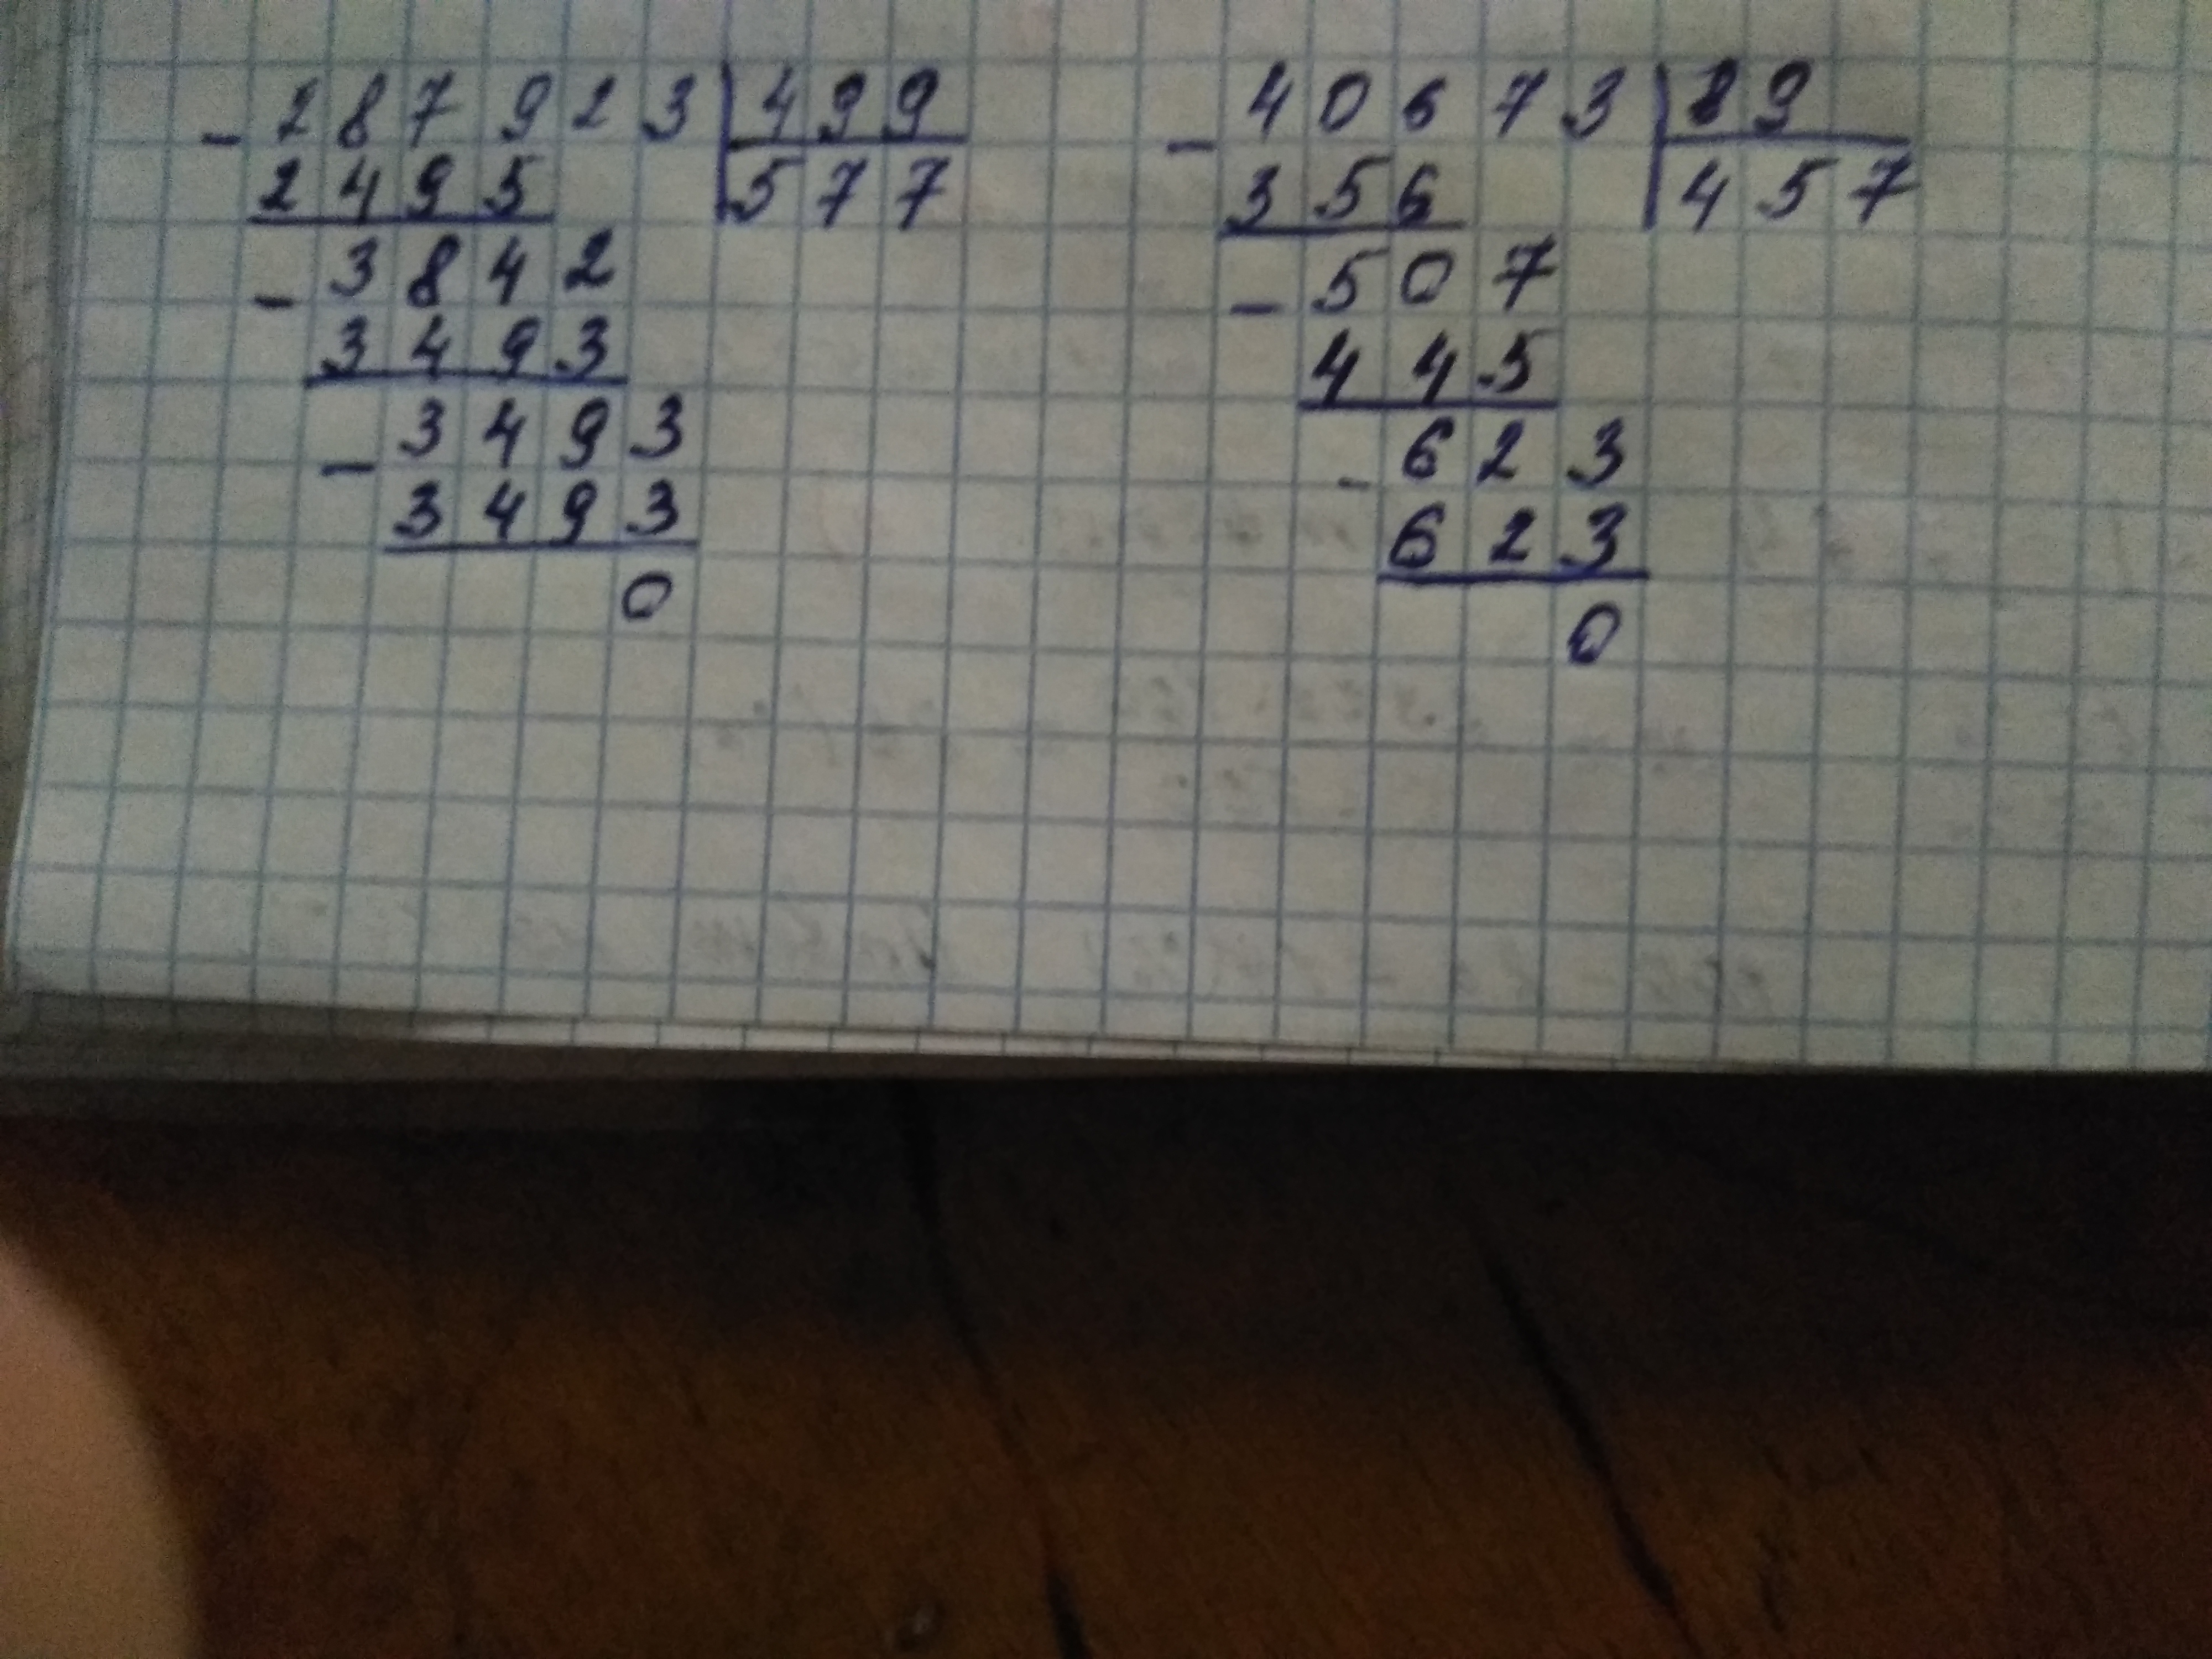 - 287923 | 499
2495 | 577
- 3842
3493
- 3493
3493
0
- 40673 | 89
356 | 457
- 507
445
- 623
623
0